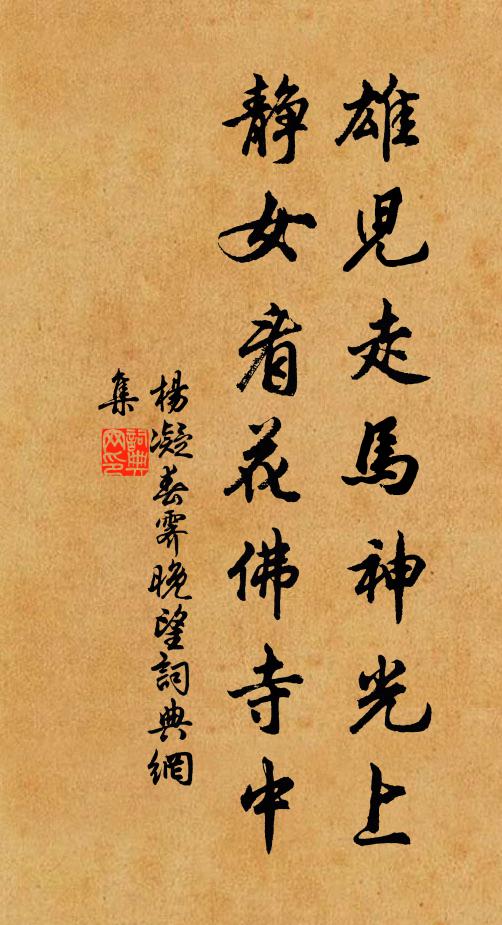 雄児走馬神光上
靜女看花佛寺中
楊凝春霽晚望詞典網
集
詞典
网印